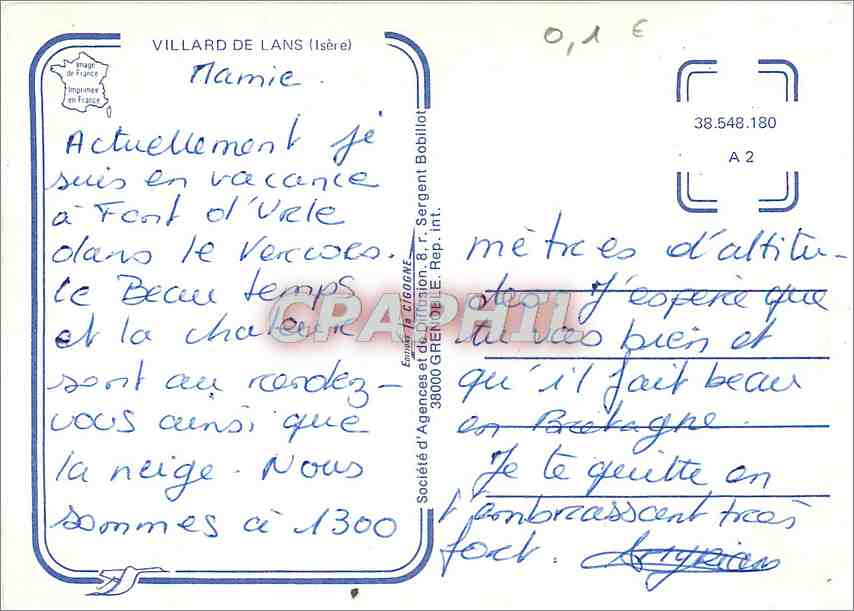 VILLARD DE LANS (Isère)
Image
de France
Imprimée
en France
Mamie.
Actuellement je
suis en vacance
à Font d'Urle
dans le Vercors.
le Beau temps
et la chaleur
sont au rendez-
vous ainsi que
la neige. Nous
sommes à 1300
Editions la CIGOGNE
Société d'Agences et de Diffusion, 8, r. Sergent Bobillot
38000 GRENOBLE. Rep. int.
0,1 €
38.548.180
A 2
mètres d'altitu-
des. J'espère que
tu vas bien et
qu'il fait beau
en Bretagne.
Je te quitte en
t'embrassent très
fort.
CPAPHIL